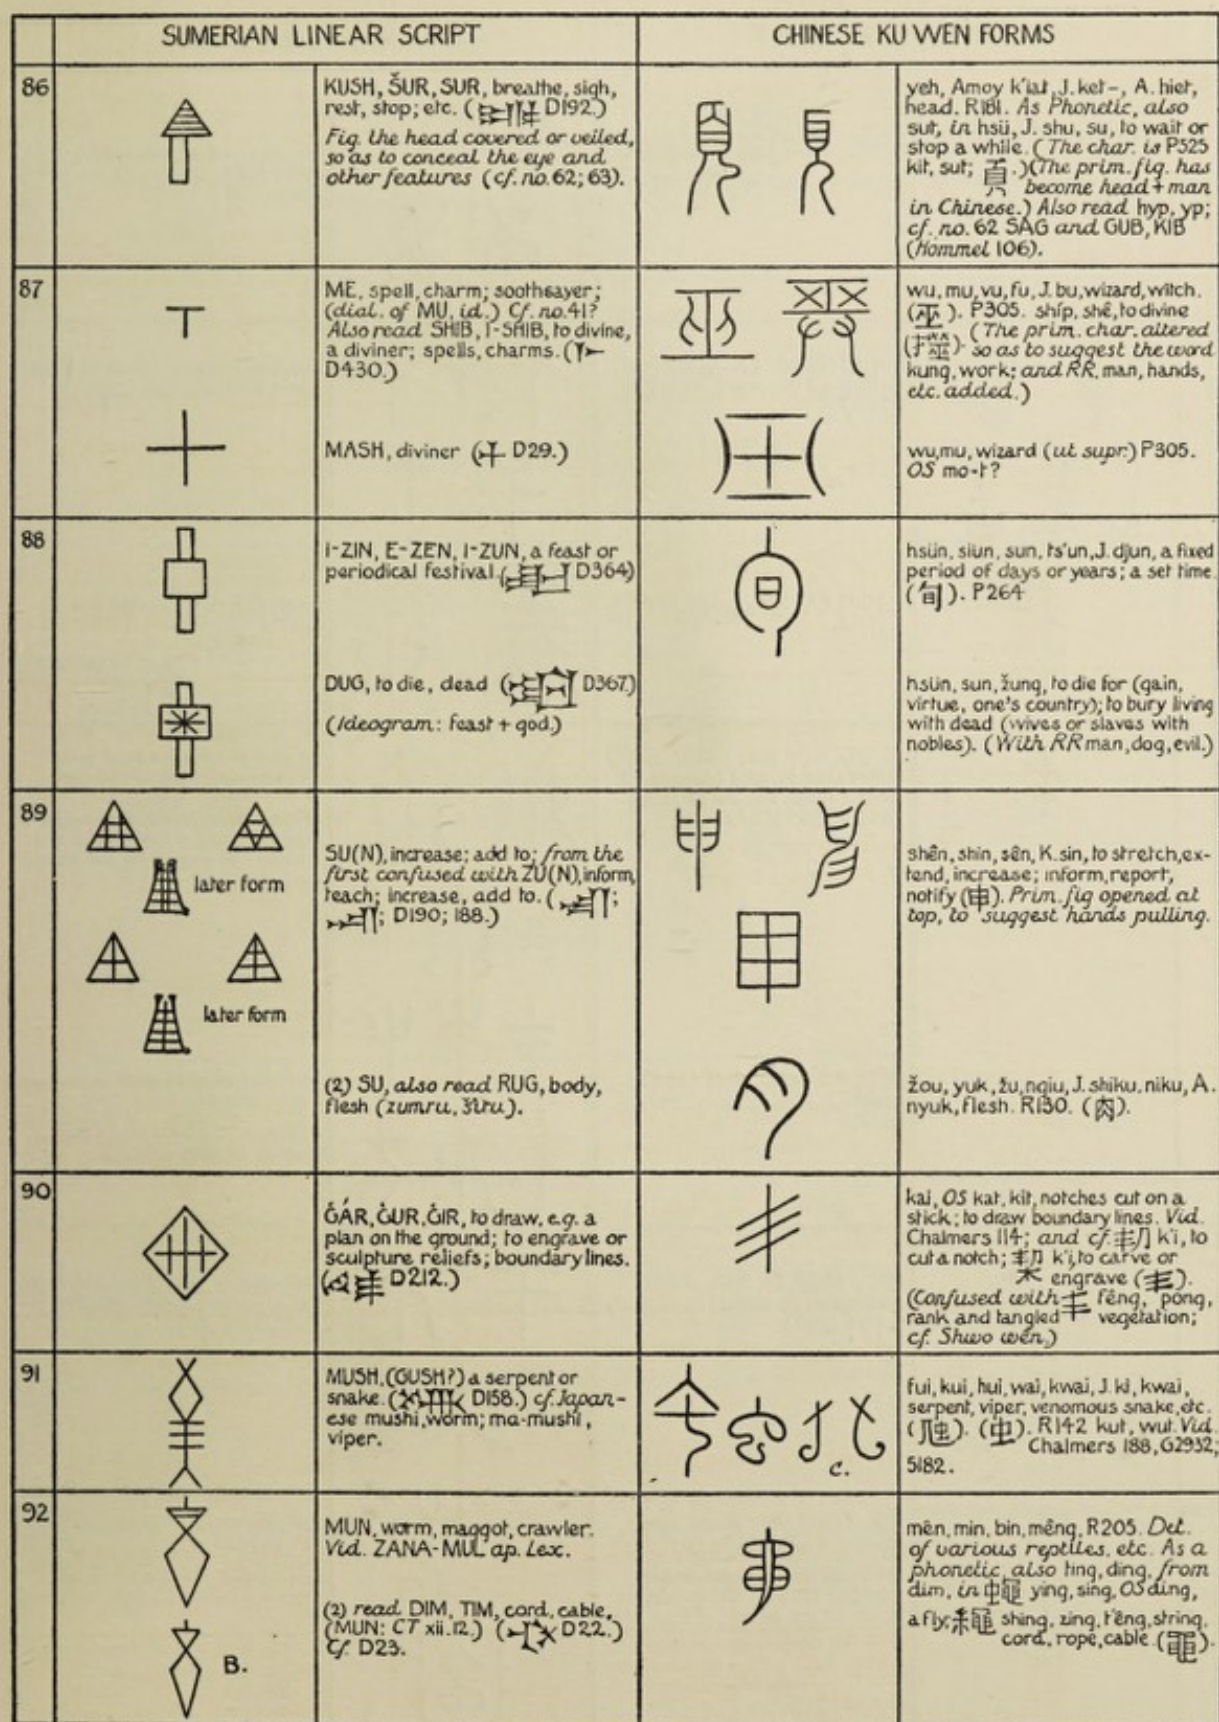 SUMERIAN LINEAR SCRIPT
CHINESE KU WEN FORMS
86
KUSH, ŠUR, SUR, breathe, sigh,
rest, stop; etc. ( D192.)
Fig. the head covered or veiled,
so as to conceal the eye and
other features (cf. no. 62; 63).
yeh, Amoy k'iat, J. ket-, A. hiet,
head. R181. As Phonetic, also
sut, in hsü, J. shu, su, to wait or
stop a while. (The char. is P525
kit, sut; .) (The prim. fig. has
become head + man
in Chinese.) Also read hyp, yp;
cf. no. 62 SAG and GUB, KIB
(Hommel 106).
87
ME, spell, charm; soothsayer;
(dial. of MU, id.) Cf. no. 41?
Also read SHIB, I-SHIB, to divine,
a diviner; spells, charms. (
D430.)
MASH, diviner ( D29.)
wu, mu, vu, fu, J. bu, wizard, witch.
(巫). P305. shíp, shê, to divine
( ) (The prim. char. altered
so as to suggest the word
kung, work; and RR. man, hands,
etc. added.)
wu, mu, wizard (ut supr.) P305.
OS mo-t?
88
I-ZIN, E-ZEN, I-ZUN, a feast or
periodical festival. ( D364)
DUG, to die, dead ( D367.)
(Ideogram: feast + god.)
hsün, siun, sun, ts'un, J. djun, a fixed
period of days or years; a set time.
(旬). P264
hsün, sun, žung, to die for (gain,
virtue, one's country); to bury living
with dead (wives or slaves with
nobles). (With RR man, dog, evil.)
89
later form
later form
SU(N), increase; add to; from the
first confused with ZU(N), inform,
teach; increase, add to. ( ;
; D190; 188.)
(2) SU, also read RUG, body,
flesh (zumru, šîru).
shên, shin, sên, K. sin, to stretch, ex-
tend, increase; inform, report,
notify (申). Prim. fig opened at
top, to suggest hands pulling.
žou, yuk, žu, ngiu, J. shiku, niku, A.
nyuk, flesh. R130. (肉).
90
ĠÁR, ĠUR, ĠIR, to draw, e.g. a
plan on the ground; to engrave or
sculpture reliefs; boundary lines.
( D212.)
kai, OS kat, kit, notches cut on a
stick; to draw boundary lines. Vid.
Chalmers 114; and cf. 㓞 k'i, to
cut a notch; 栔 k'i, to carve or
engrave (丯).
(Confused with 丰 fêng, pong,
rank and tangled vegetation;
cf. Shwo wên.)
91
MUSH, (GUSH?) a serpent or
snake. ( D158.) cf. Japan-
ese mushi, worm; ma-mushi,
viper.
c.
fui, kui, hui, wai, kwai, J. ki, kwai,
serpent, viper, venomous snake, etc.
(虺). (虫). R142 kut, wut. Vid.
Chalmers 188, G2932;
5182.
92
B.
MUN, worm, maggot, crawler.
Vid. ZANA-MUL ap. Lex.
(2) read DIM, TIM, cord, cable,
(MUN: CT xii. 12.) ( D22.)
Cf. D23.
mên, min, bin, mêng, R205. Det.
of various reptiles, etc. As a
phonetic, also ting, ding, from
dim, in 蠅 ying, sing, OS ding,
a fly; 繩 shing, zing, t'êng, string,
cord, rope, cable (黽).